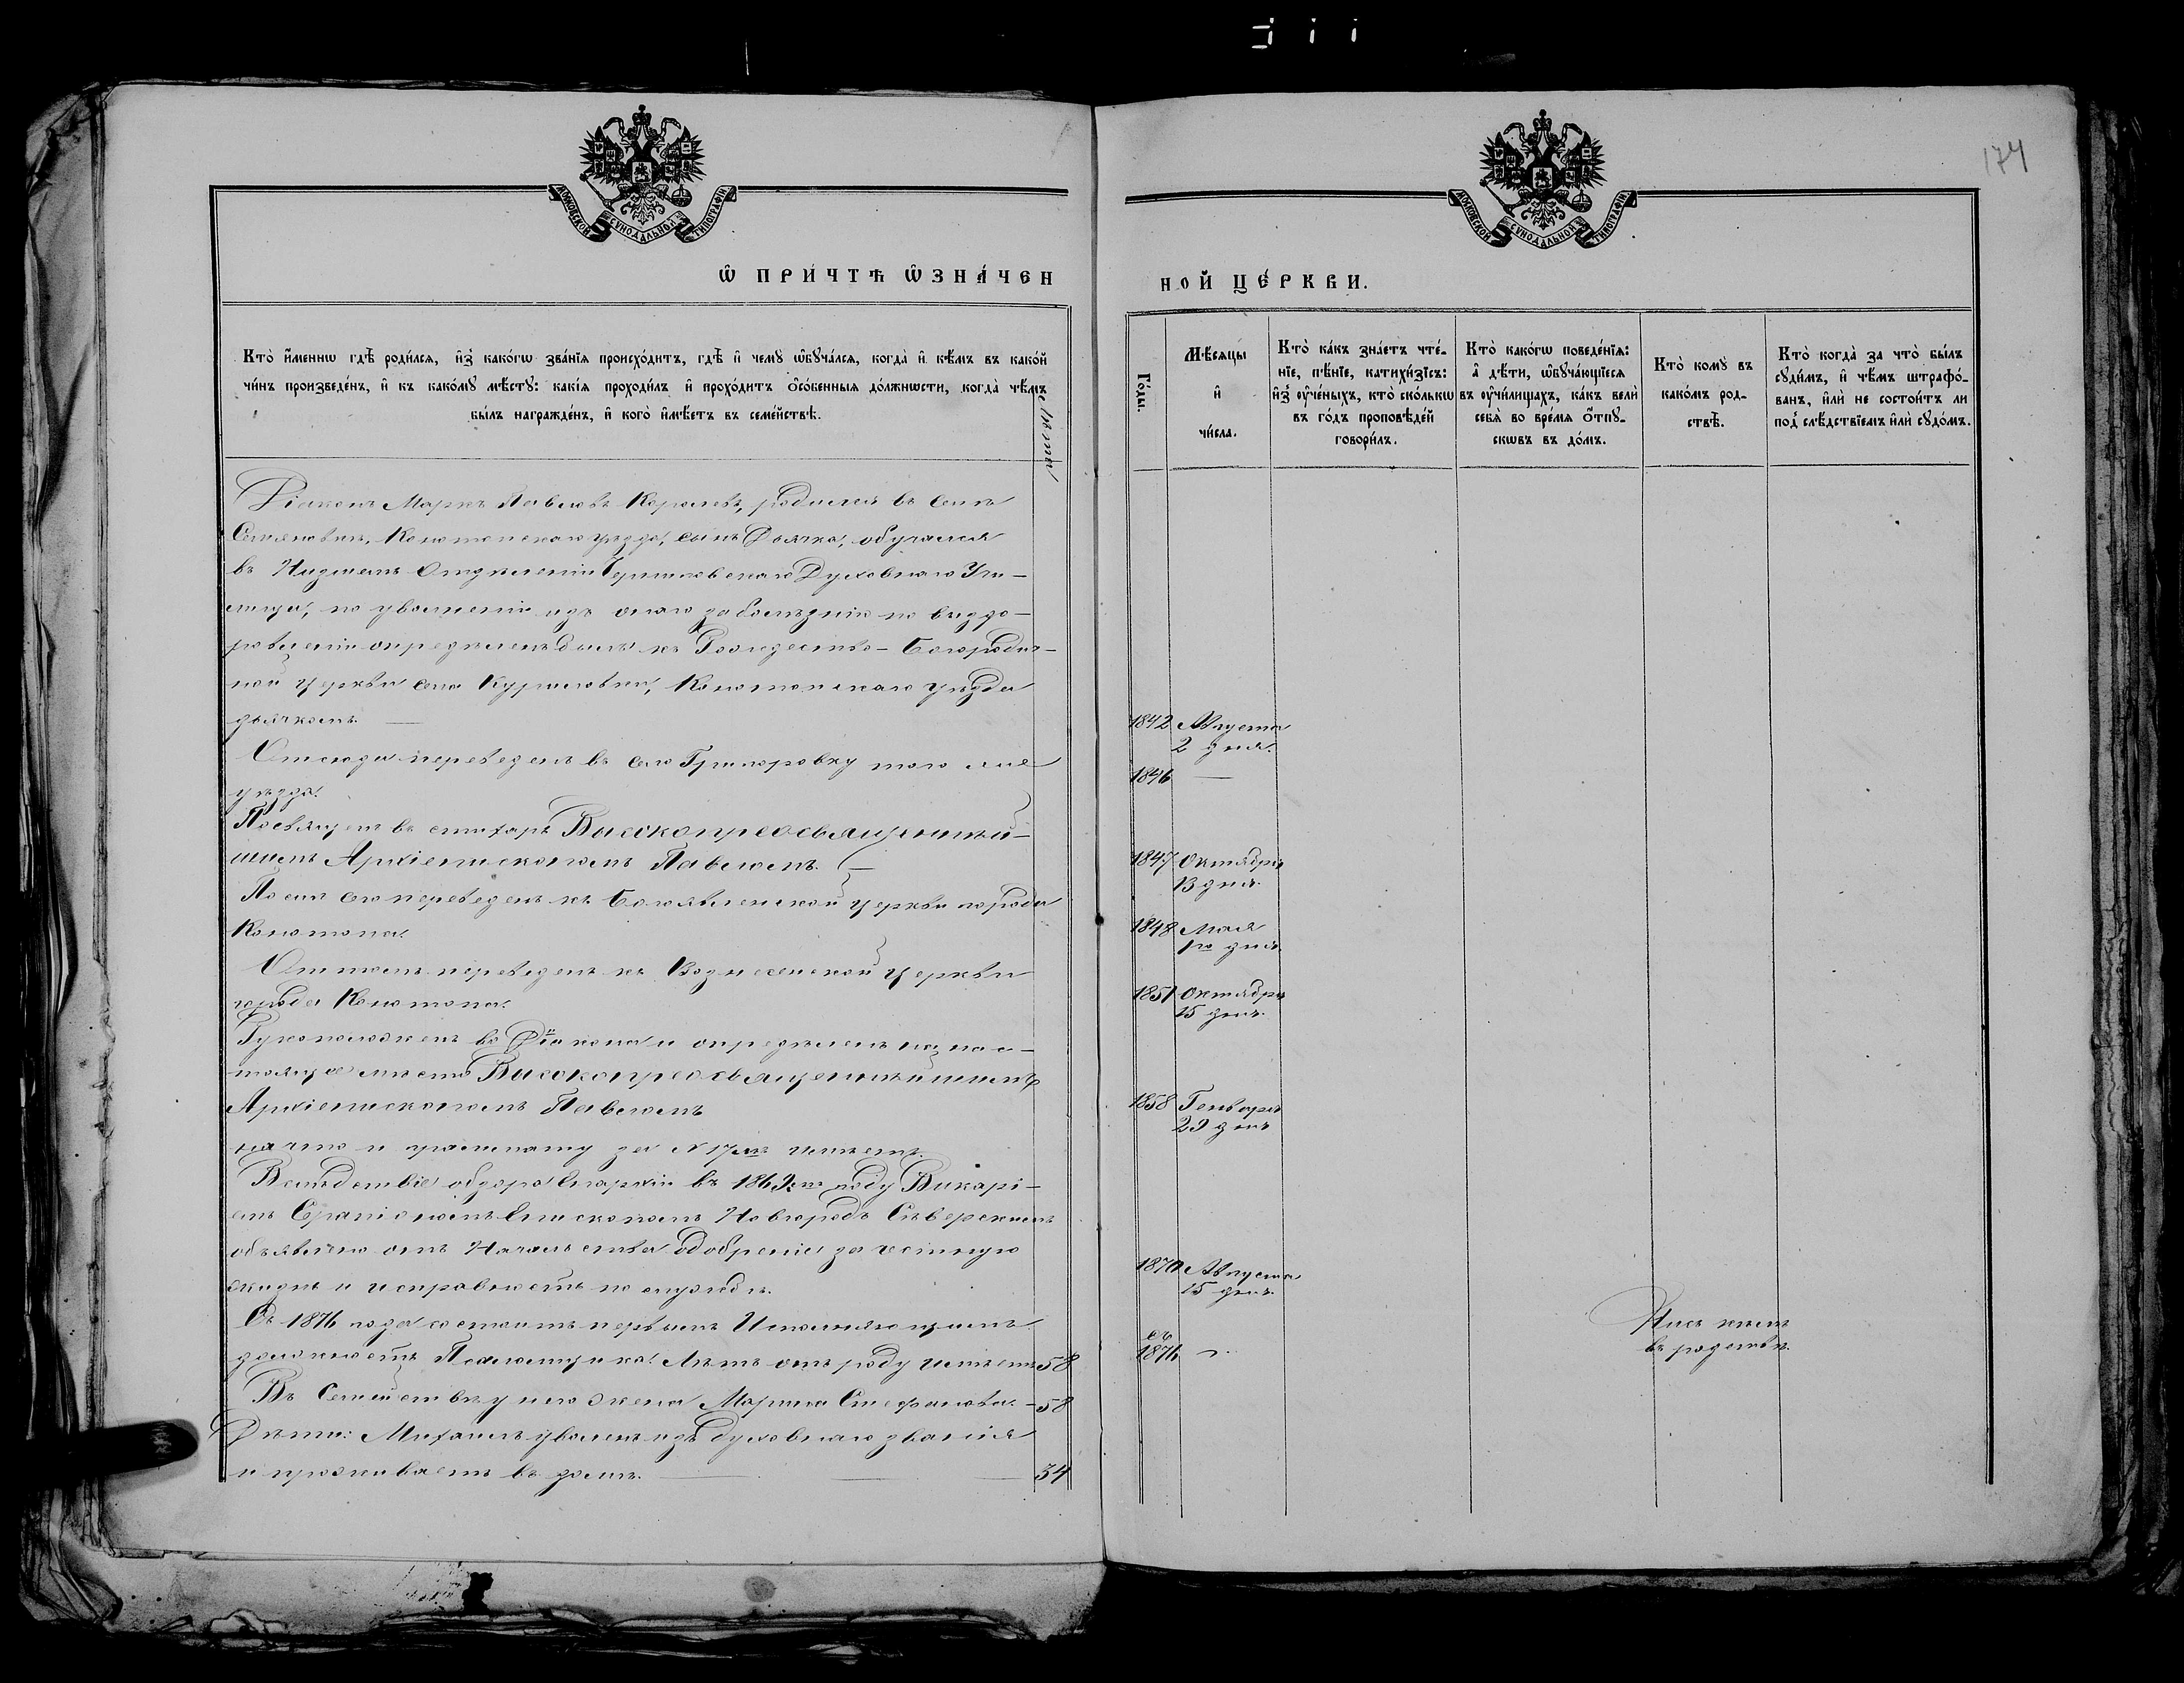 174
МОСКОВСКОЙ СѴНОДАЛЬНОЙ ТИПОГРАФІИ
МОСКОВСКОЙ СѴНОДАЛЬНОЙ ТИПОГРАФІИ
Ѡ ПРИ́ЧТѢ ѠЗНА́ЧЕН
НОЙ ЦЕ́РКВИ.
Кто̀ и҆́меннѡ гдѣ̀ роди́лся, и҆з̾ како́гѡ зва́нїѧ происхо́дитъ, гдѣ̀ и҆ чемꙋ̀ ѡ҆бꙋча́лся, когда̀ и҆ кѣ́мъ въ како́й
чи́нъ произведе́нъ, и҆ къ како́мꙋ мѣ́стꙋ: какі́ѧ проходи́лъ и҆ прохо́дитъ ѻ҆со́бенныѧ до́лжнѡсти, когда̀ чѣ́мъ
бы́лъ награжде́нъ, и҆ кого̀ и҆мѣ́етъ въ семе́йствѣ.
Лѣта
Го́ды.
Мѣ́сѧцы
и҆
чи́сла.
Кто̀ ка́къ зна́етъ чте́-
нїе, пѣ́нїе, катихи́зїсъ:
и҆з̾ ᲂу҆че́ныхъ, кто̀ ско́лькѡ
въ го́дъ проповѣ́дей
говори́лъ.
Кто̀ како́гѡ поведе́нїѧ:
а҆ дѣ́ти, ѡ҆бꙋча́ющїесѧ
въ ᲂу҆чи́лищахъ, ка́къ велѝ
себѧ̀ во вре́мѧ ѻ҆́тпꙋ-
скѡвъ въ до́мъ.
Кто̀ комꙋ̀ въ
како́мъ род-
ствѣ̀.
Кто̀ когда̀ за что̀ бы́лъ
сꙋди́мъ, и҆ чѣ́мъ штрафо́-
ванъ, и҆лѝ не состои́тъ ли
под̾ слѣ́дствїемъ и҆лѝ сꙋдо́мъ.
Діаконъ Маркъ Павловъ Королевъ, родился въ селѣ
Конотопскаго уѣзда, сынъ Дьячка, обучался
въ Низшемъ Отдѣленіи Черниговскаго Духовнаго Учи-
лища, по увольненіи изъ онаго за болѣзнію по выздо-
ровленіи опредѣленъ былъ къ Рождество-Богородич-
ной церкви села Куриловки, Конотопскаго уѣзда
дьячкомъ. —
1842 Августа
2 дня.
Отсюда переведенъ въ село Григоровку того же
уѣзда.
1846 —
Посвященъ въ стихарь Высокопреосвященнѣй-
шимъ Архіепископомъ Павломъ. —
1847 Октября
13 дня.
Послѣ сего переведенъ къ Богоявленской церкви города
Конотопа.
1848 Мая
1го дня.
Оттоль переведенъ къ Вознесенской церкви
города Конотопа.
1851 Октября
15 дня.
Рукоположенъ во Діакона и опредѣленъ на нас-
тоящее мѣсто Высокопреосвященнѣйшимъ
Архіепископомъ Павломъ
1858 Генваря
29 дня
на что и грамоту за N 17мъ имѣетъ.
Вслѣдствіе обзора Епархіи въ 1869мъ году Викарі-
емъ Серапіономъ Епископомъ Новгородъ Сѣверскимъ
объявлено отъ Начальства одобреніе за честную
жизнь и исправность по службѣ.
1870 Августа
15 дня.
Съ 1876 года состоитъ первымъ Исполняющимъ
должность Псаломщика. Лѣтъ отъ роду имѣетъ 58
съ
1876 —.
Нисъ кѣмъ
въ родствѣ.
Въ Семействѣ у него жена Марина Стефанова. - 58
Дѣти: Михаилъ уволенъ изъ духовнаго званія
и проживаетъ въ домѣ. — 34